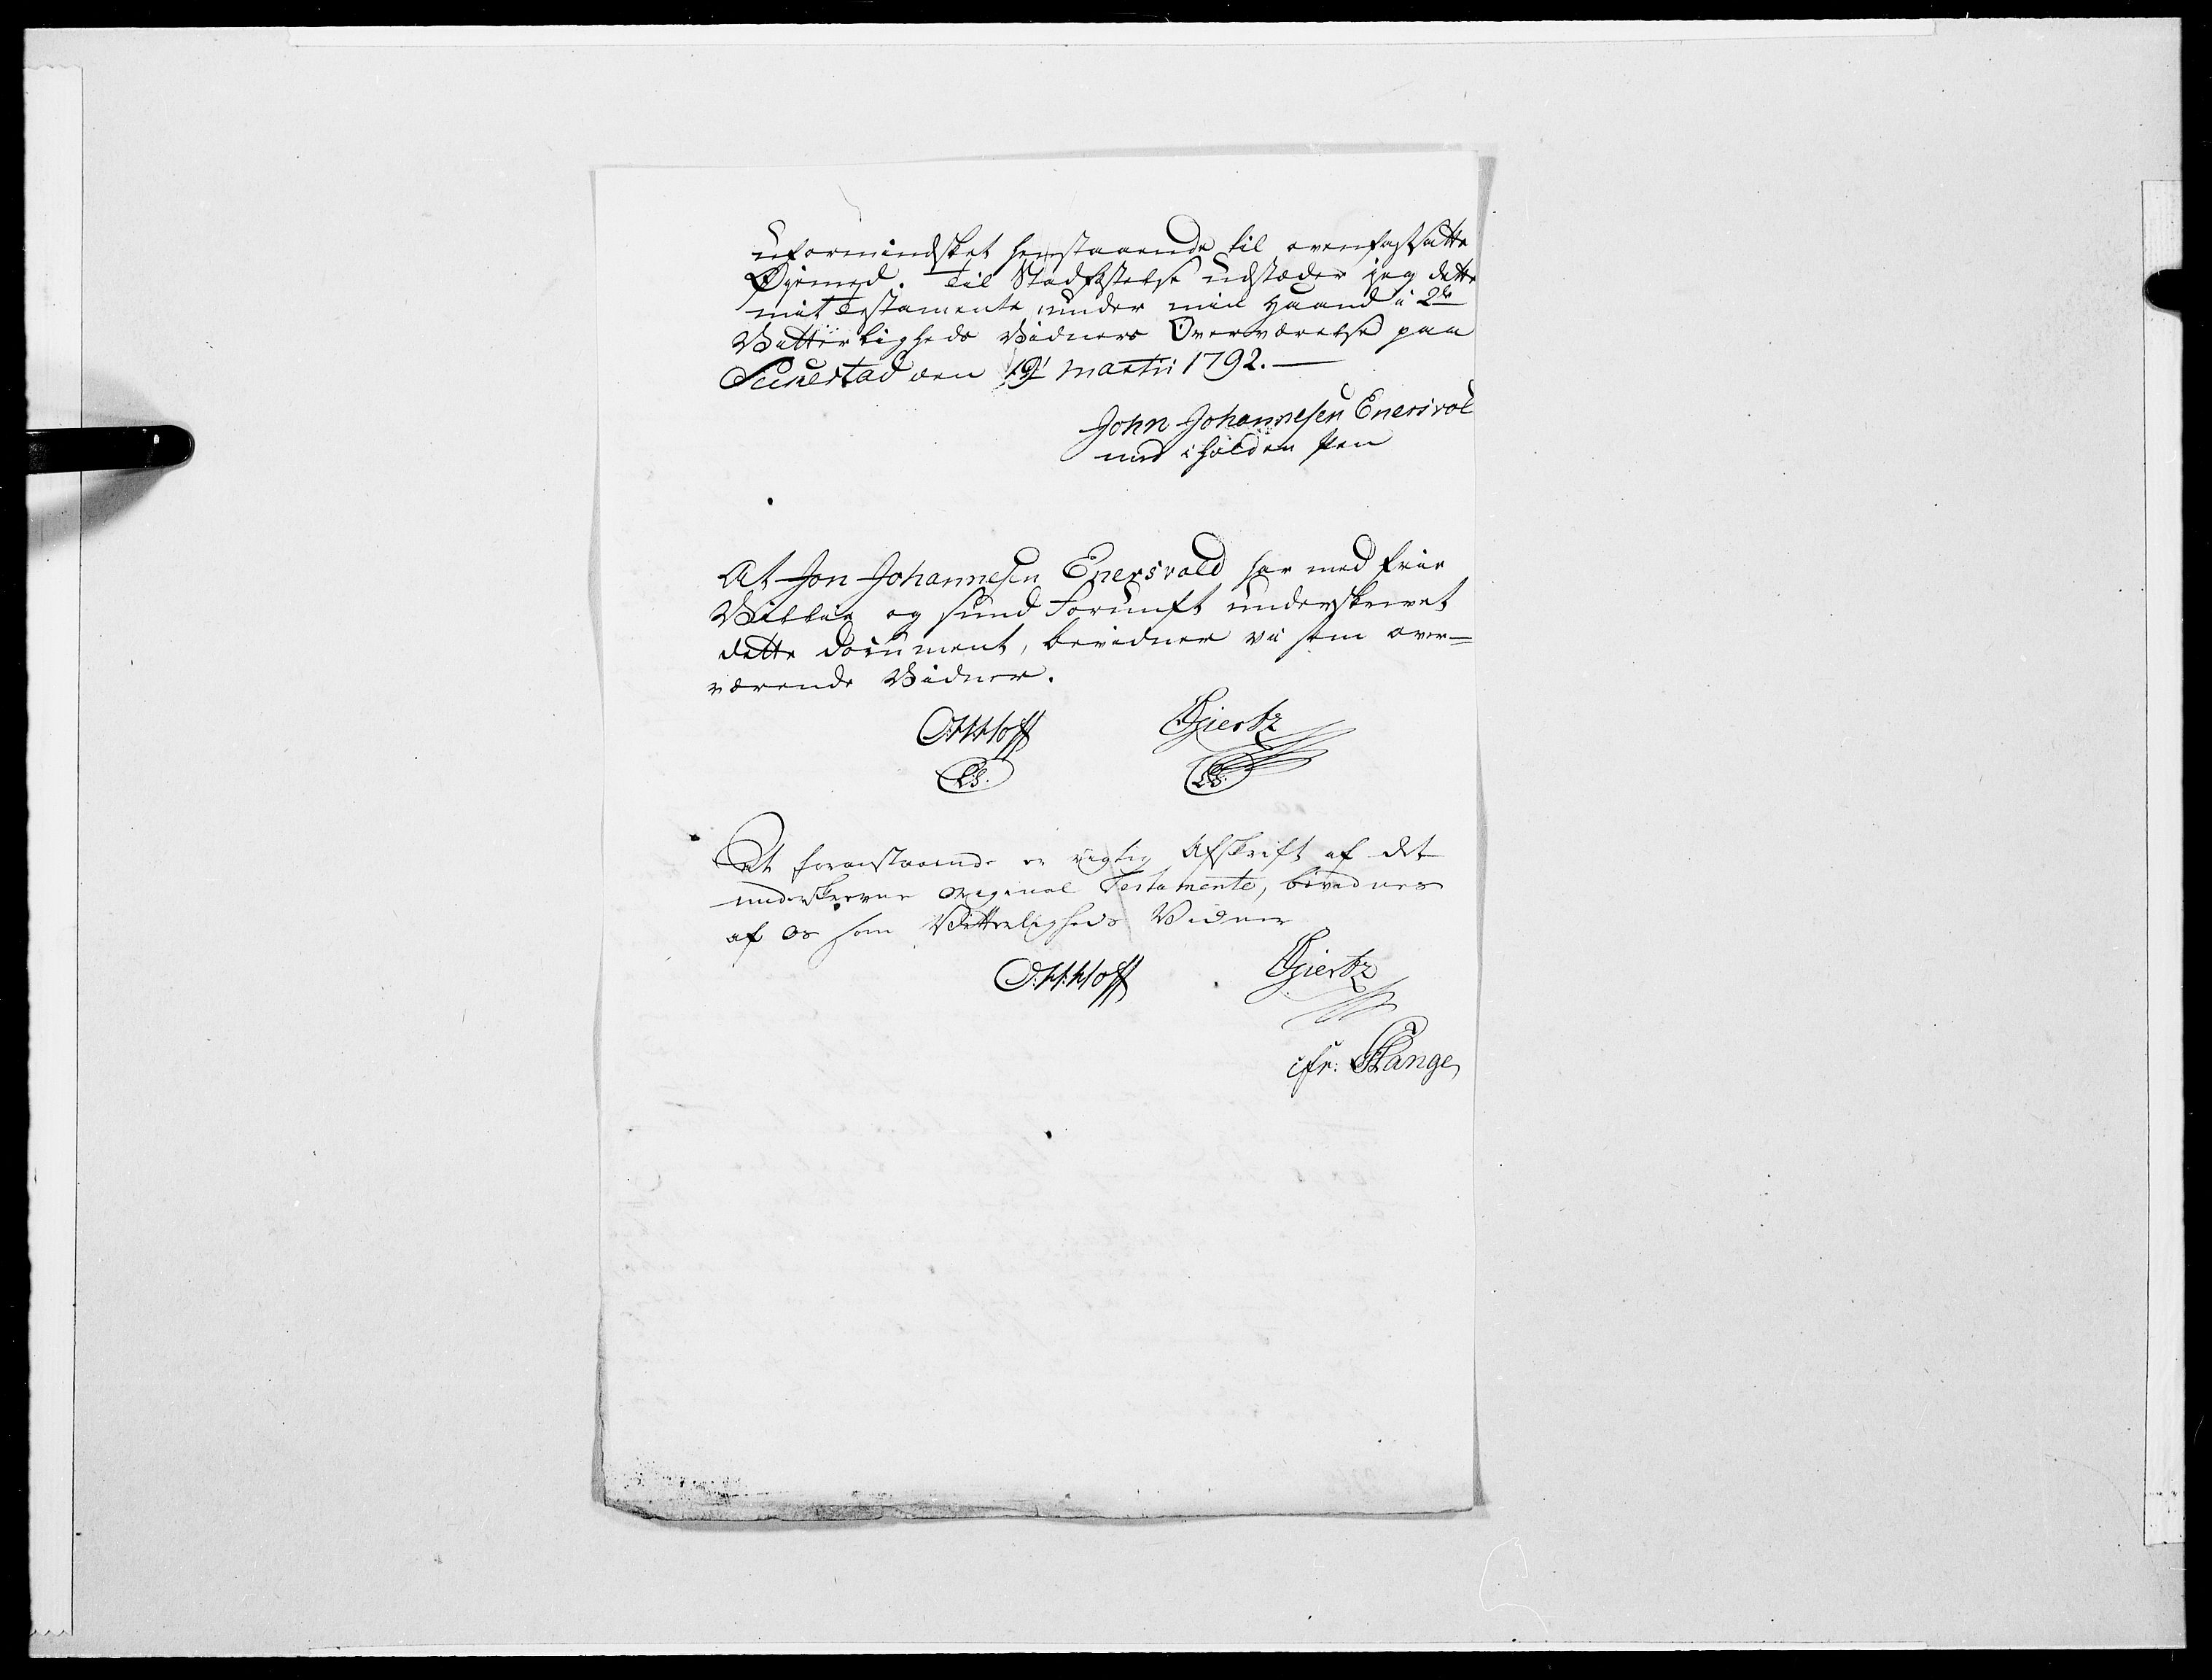 uformindsket henstaaende til ovenfastsatte
Øjemed. Til Stadfæstelse udstæder jeg dette
mit Testamente under min Haand i 2de
Vitterligheds Vidners Overværelse paa
den 19' Martii 1792.
John Johannesen Enersvol
med iholden Pen
At Jon Johannesen Enersvold har med frie
Villie og sund Fornunft underskrevet
dette Document, bevidner vi som over=
værende Vidner.
OHHoff Gjertz
LS. LS.
At foranstaaende er rigtig Afskrift af det
underskrevne original Testamente, bevidnes
af os som Vitterligheds Vidner
O.H.Hoff Gjertz
cfr. Stange